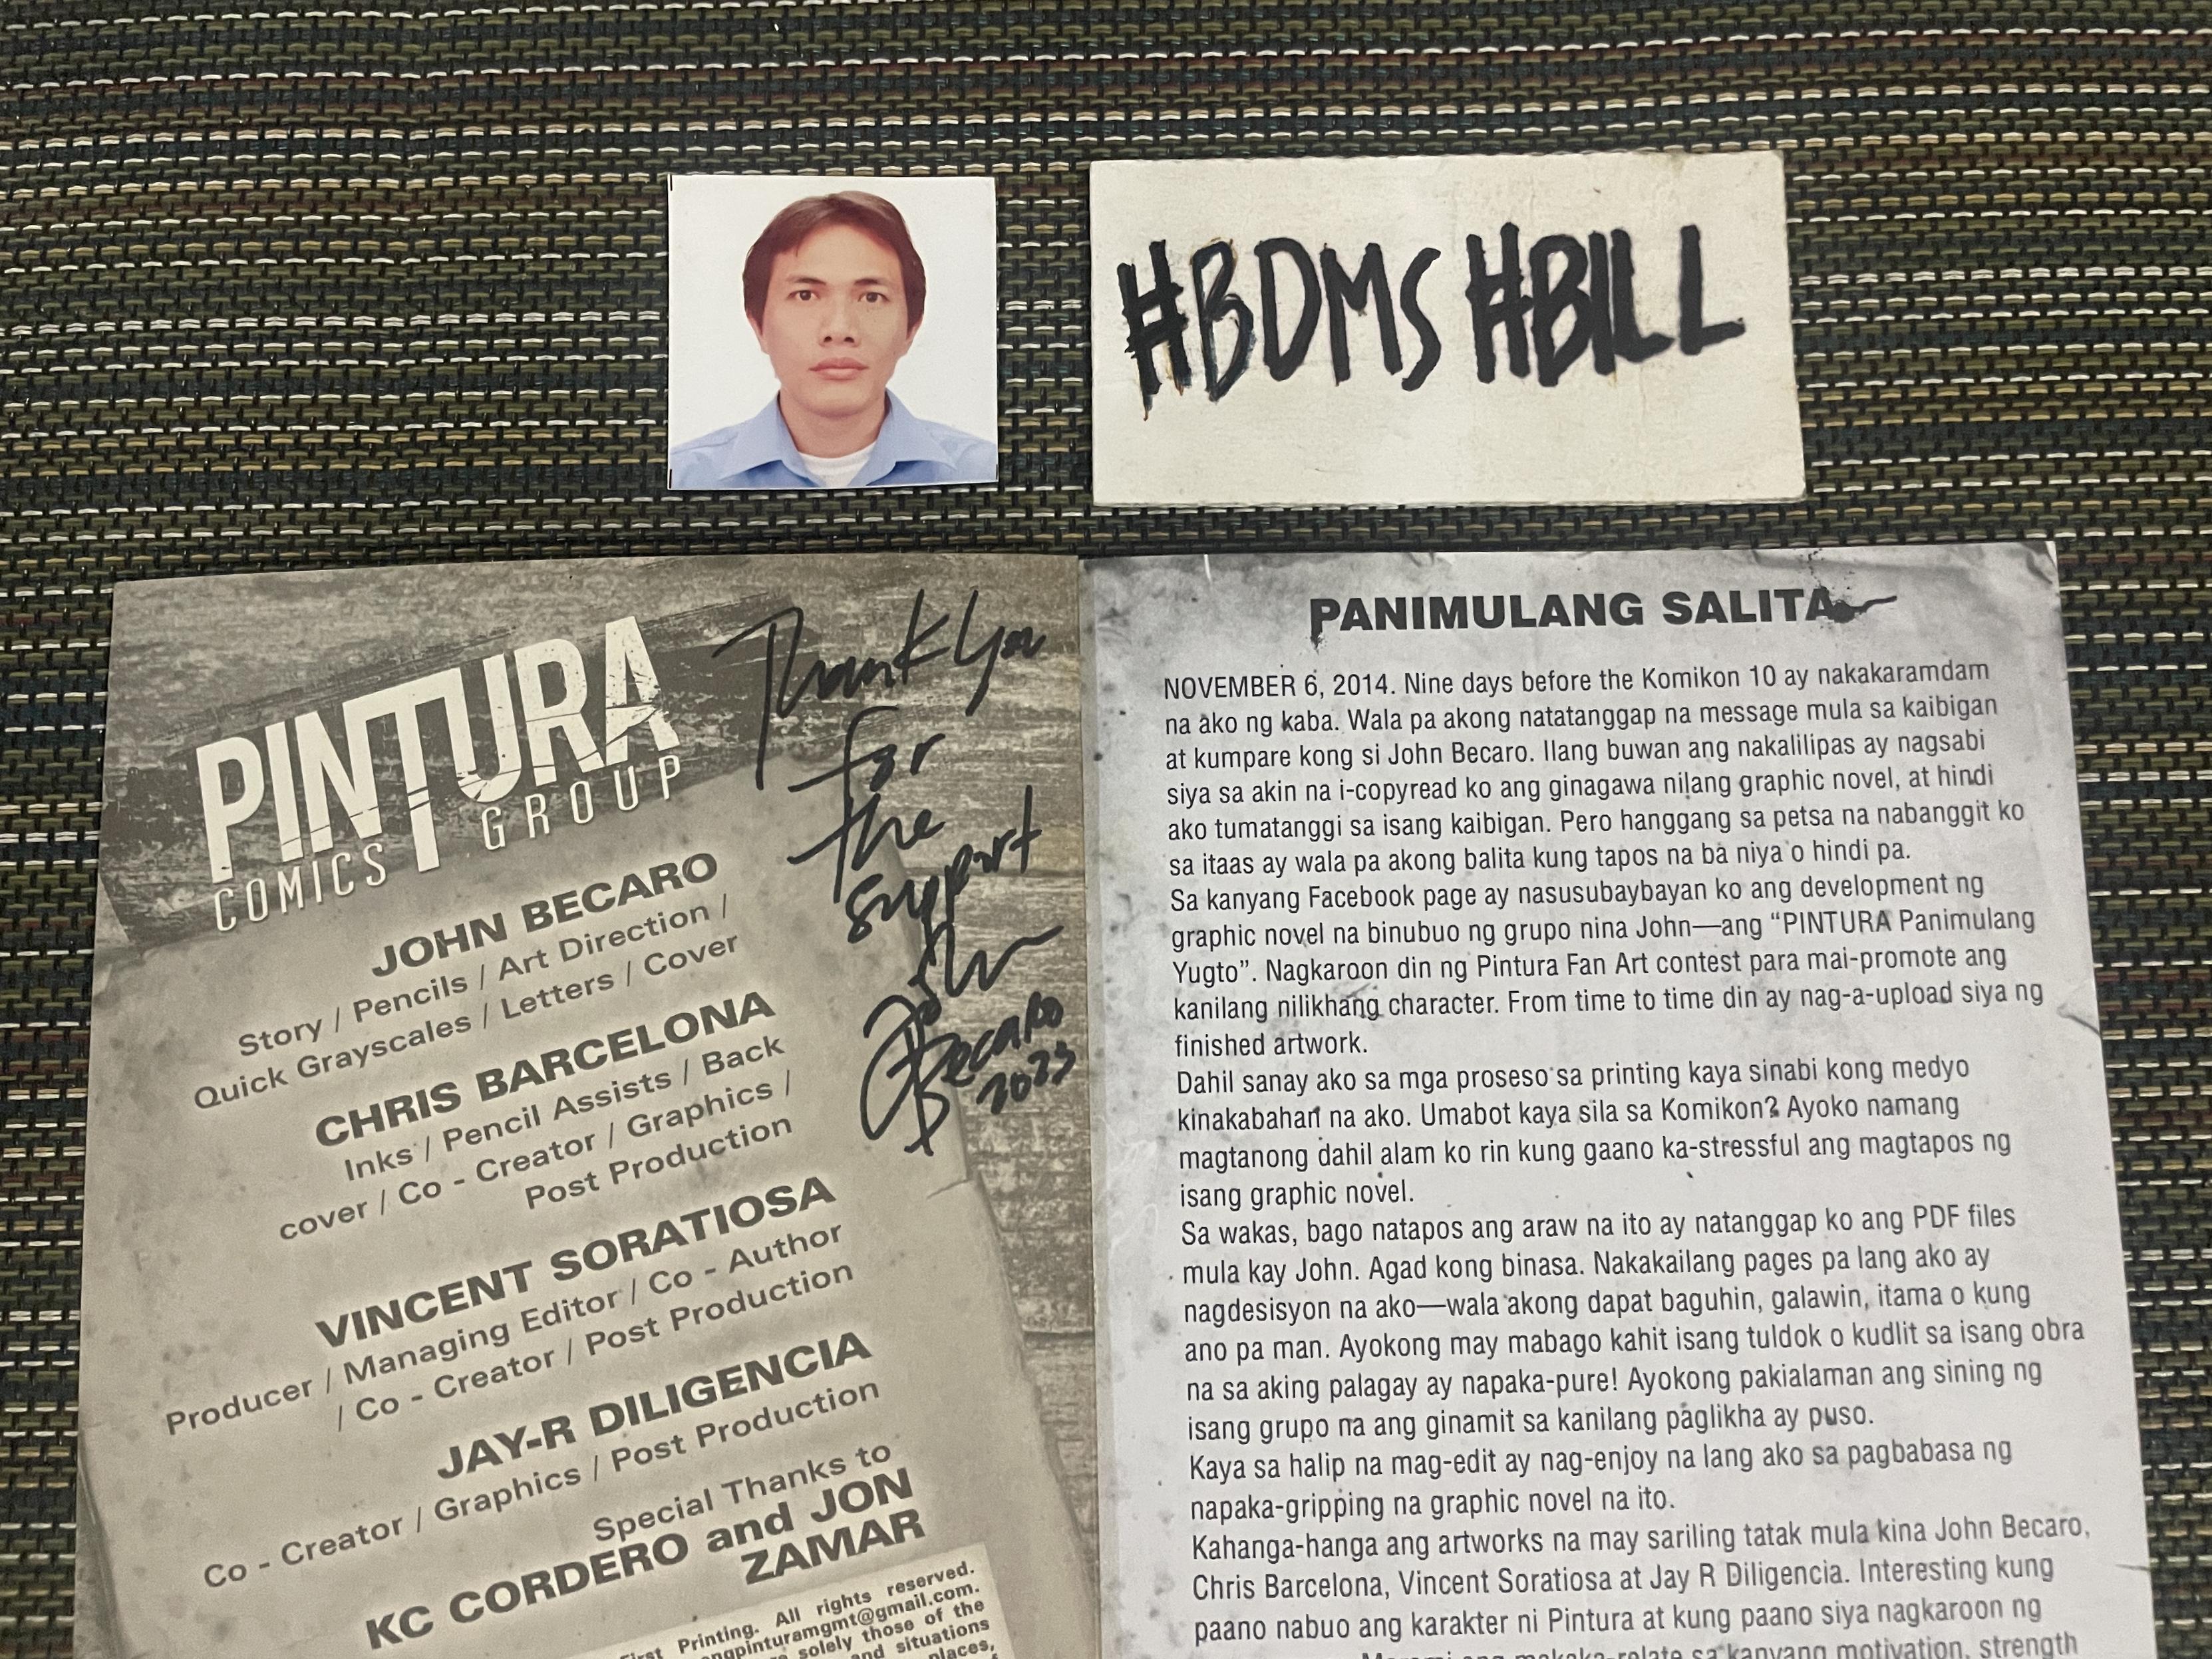 #BDMS #BILL
PINTURA
COMICS GROUP
JOHN BECARO
Story / Pencils / Art Direction /
Quick Grayscales / Letters / Cover
CHRIS BARCELONA
Inks / Pencil Assists / Back
cover / Co - Creator / Graphics /
Post Production
VINCENT SORATIOSA
Producer / Managing Editor / Co - Author
/ Co - Creator / Post Production
JAY-R DILIGENCIA
Co - Creator / Graphics / Post Production
Special Thanks to
KC CORDERO and JON
ZAMAR
First Printing. All rights reserved.
ngpinturamgmt@gmail.com.
solely those of the
and situations
places,
Thank You
for
the
support
John
Becaro
2023
PANIMULANG SALITA
NOVEMBER 6, 2014. Nine days before the Komikon 10 ay nakakaramdam
na ako ng kaba. Wala pa akong natatanggap na message mula sa kaibigan
at kumpare kong si John Becaro. Ilang buwan ang nakalilipas ay nagsabi
siya sa akin na i-copyread ko ang ginagawa nilang graphic novel, at hindi
ako tumatanggi sa isang kaibigan. Pero hanggang sa petsa na nabanggit ko
sa itaas ay wala pa akong balita kung tapos na ba niya o hindi pa.
Sa kanyang Facebook page ay nasusubaybayan ko ang development ng
graphic novel na binubuo ng grupo nina John—ang “PINTURA Panimulang
Yugto”. Nagkaroon din ng Pintura Fan Art contest para mai-promote ang
kanilang nilikhang character. From time to time din ay nag-a-upload siya ng
finished artwork.
Dahil sanay ako sa mga proseso sa printing kaya sinabi kong medyo
kinakabahan na ako. Umabot kaya sila sa Komikon? Ayoko namang
magtanong dahil alam ko rin kung gaano ka-stressful ang magtapos ng
isang graphic novel.
Sa wakas, bago natapos ang araw na ito ay natanggap ko ang PDF files
mula kay John. Agad kong binasa. Nakakailang pages pa lang ako ay
nagdesisyon na ako—wala akong dapat baguhin, galawin, itama o kung
ano pa man. Ayokong may mabago kahit isang tuldok o kudlit sa isang obra
na sa aking palagay ay napaka-pure! Ayokong pakialaman ang sining ng
isang grupo na ang ginamit sa kanilang paglikha ay puso.
Kaya sa halip na mag-edit ay nag-enjoy na lang ako sa pagbabasa ng
napaka-gripping na graphic novel na ito.
Kahanga-hanga ang artworks na may sariling tatak mula kina John Becaro,
Chris Barcelona, Vincent Soratiosa at Jay R Diligencia. Interesting kung
paano nabuo ang karakter ni Pintura at kung paano siya nagkaroon ng
makaka-relate sa kanyang motivation, strength